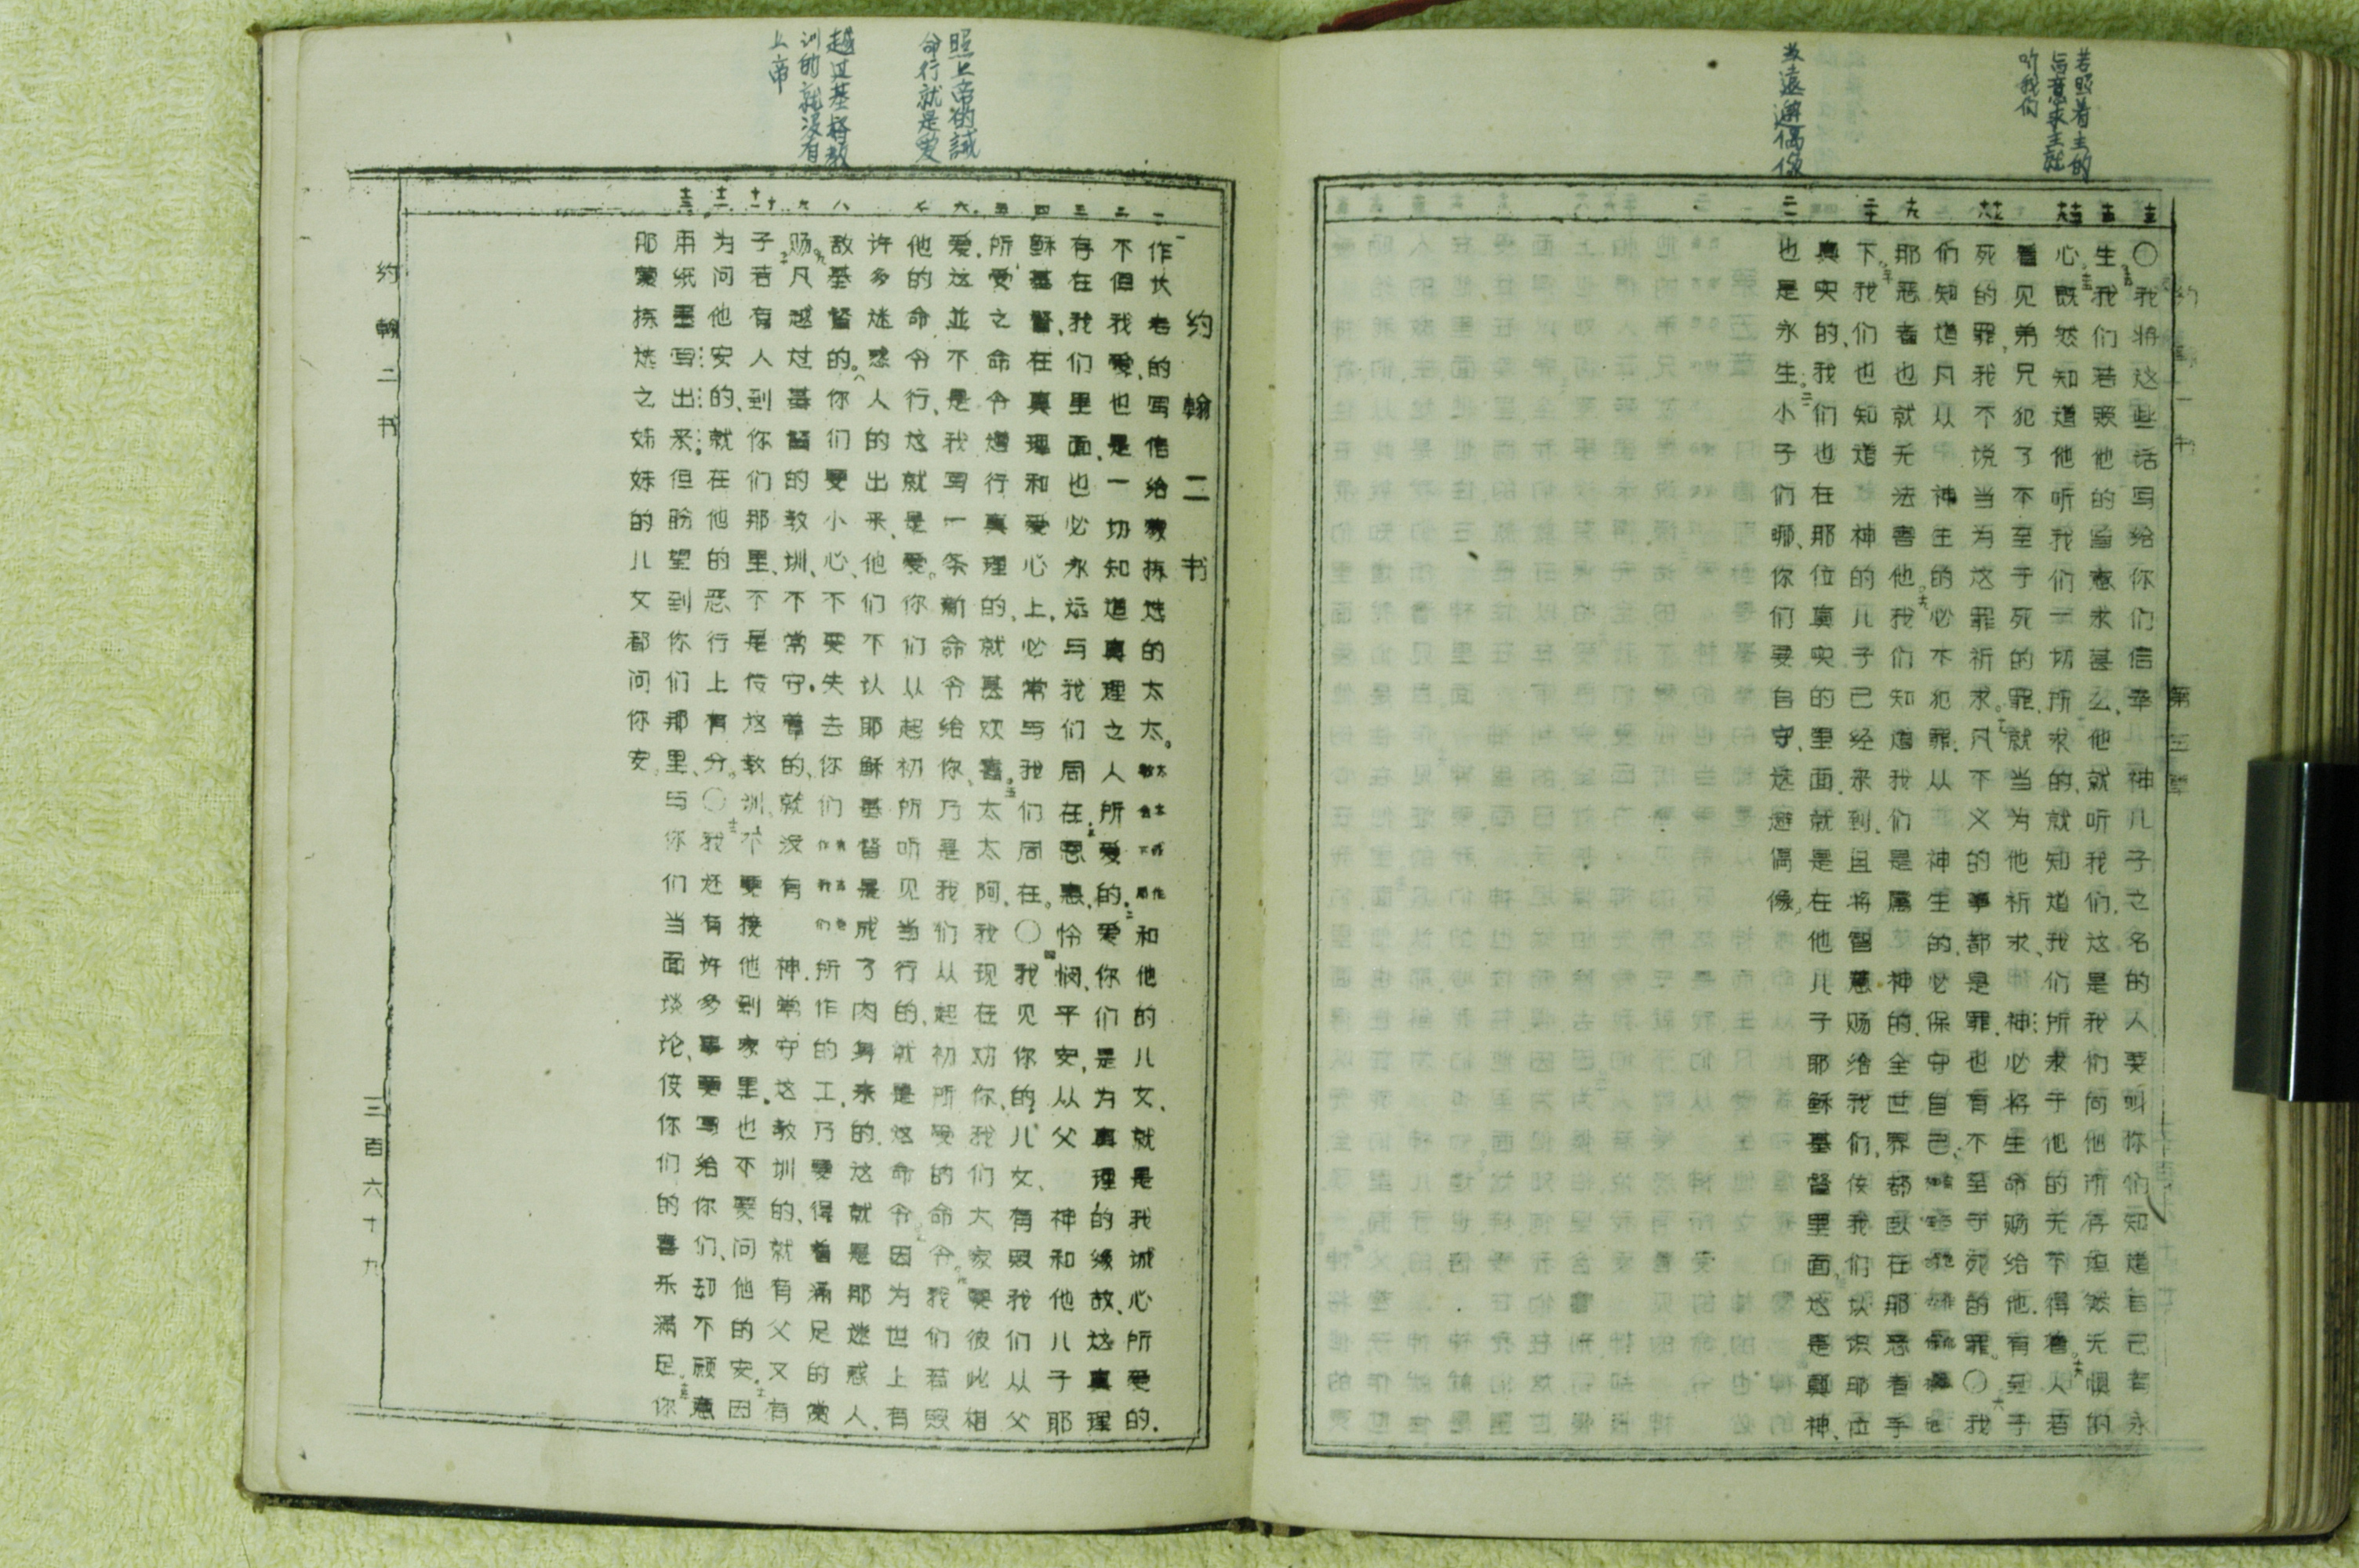 若照着主的
旨意求主就
听我们
遠避偶像
〇我将这些话写给你们信奉神儿子之名的人要叫你们知道自己有永
生。我们若照他的旨意求甚么、他就听我们、这是我们向他所存坦然无惧的
心。既然知道他听我们一切所求的、就知道我们所求于他的无不得着。人若
看见弟兄犯了不至于死的罪、就当为他祈求、神必将生命赐给他、有至于
死的罪、我不说当为这罪祈求。凡不义的事都是罪、也有不至于死的罪。〇我
们知道凡从神生的必不犯罪、从神生的、必保守自己
那恶者也就无法害他。我们知道我们是属神的、全世界都卧在那恶者手
下。我们也知道神的儿子已经来到、且将智慧赐给我们、使我们认识那位
真实的、我们也在那位真实的里面、就是在他儿子耶稣基督里面、这是真神、
也是永生。小子们哪、你们要自守、远避偶像。
约翰一书
照上帝的誡
命行就是爱
越过基督教
训的就没有
上帝
约翰二书
作长老的写信给蒙拣选的太太。和他的儿女、就是我诚心所爱的.
不但我爱、也是一切知道真理之人所爱的。爱你们是为真理的缘故、这真理
存在我们里面、也必永远与我们同在、恩惠、怜悯、平安、从父神和他儿子耶
稣基督、在真理和爱心上、必常与我们同在。〇我见你的儿女、有照我们从父
所受之命令遵行真理的、就甚欢喜。太太阿、我现在劝你、我们大家要彼此相
爱、这並不是我写一条新命令给你、乃是我们从起初所受的命令。我们若照
他的命令行、这就是爱。你们从起初所听见当行的、就是这命令。因为世上有
许多迷惑人的出来、他们不认耶稣基督是成了肉身来的、这就是那迷惑人、
敌基督的。你们要小心、不要失去你们所作的工、乃要得着满足的赏
赐。凡越过基督的教训、不常守着的、就没有神、常守这教训的、就有父又有
子。若有人到你们那里、不是传这教训、不要接他到家里、也不要问他的安。因
为问他安的、就在他的恶行上有分。〇我还有许多事要写给你们、却不愿意
用纸墨写出来、但盼望到你们那里、与你们当面谈论、使你们的喜乐满足。你
那蒙拣选之姊妹的儿女都问你安。
约翰二书
三百六十九